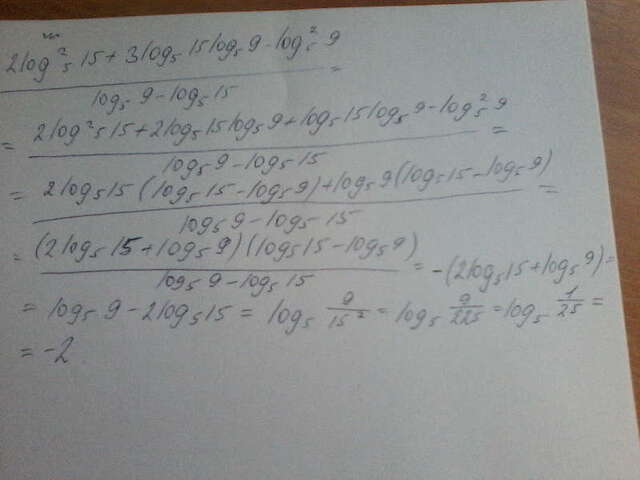 2log²₅15+3log₅15log₅9-log²₅9
log₅9-log₅15 =
= 2log²₅15+2log₅15log₅9+log₅15log₅9-log²₅9 =
log₅9-log₅15
= 2log₅15(log₅15-log₅9)+log₅9(log₅15-log₅9) =
log₅9-log₅15
= (2log₅15+log₅9)(log₅15-log₅9) = -(2log₅15+log₅9)=
log₅9-log₅15
= log₅9-2log₅15 = log₅ 9/15² = log₅ 9/225 = log₅ 1/25 =
= -2